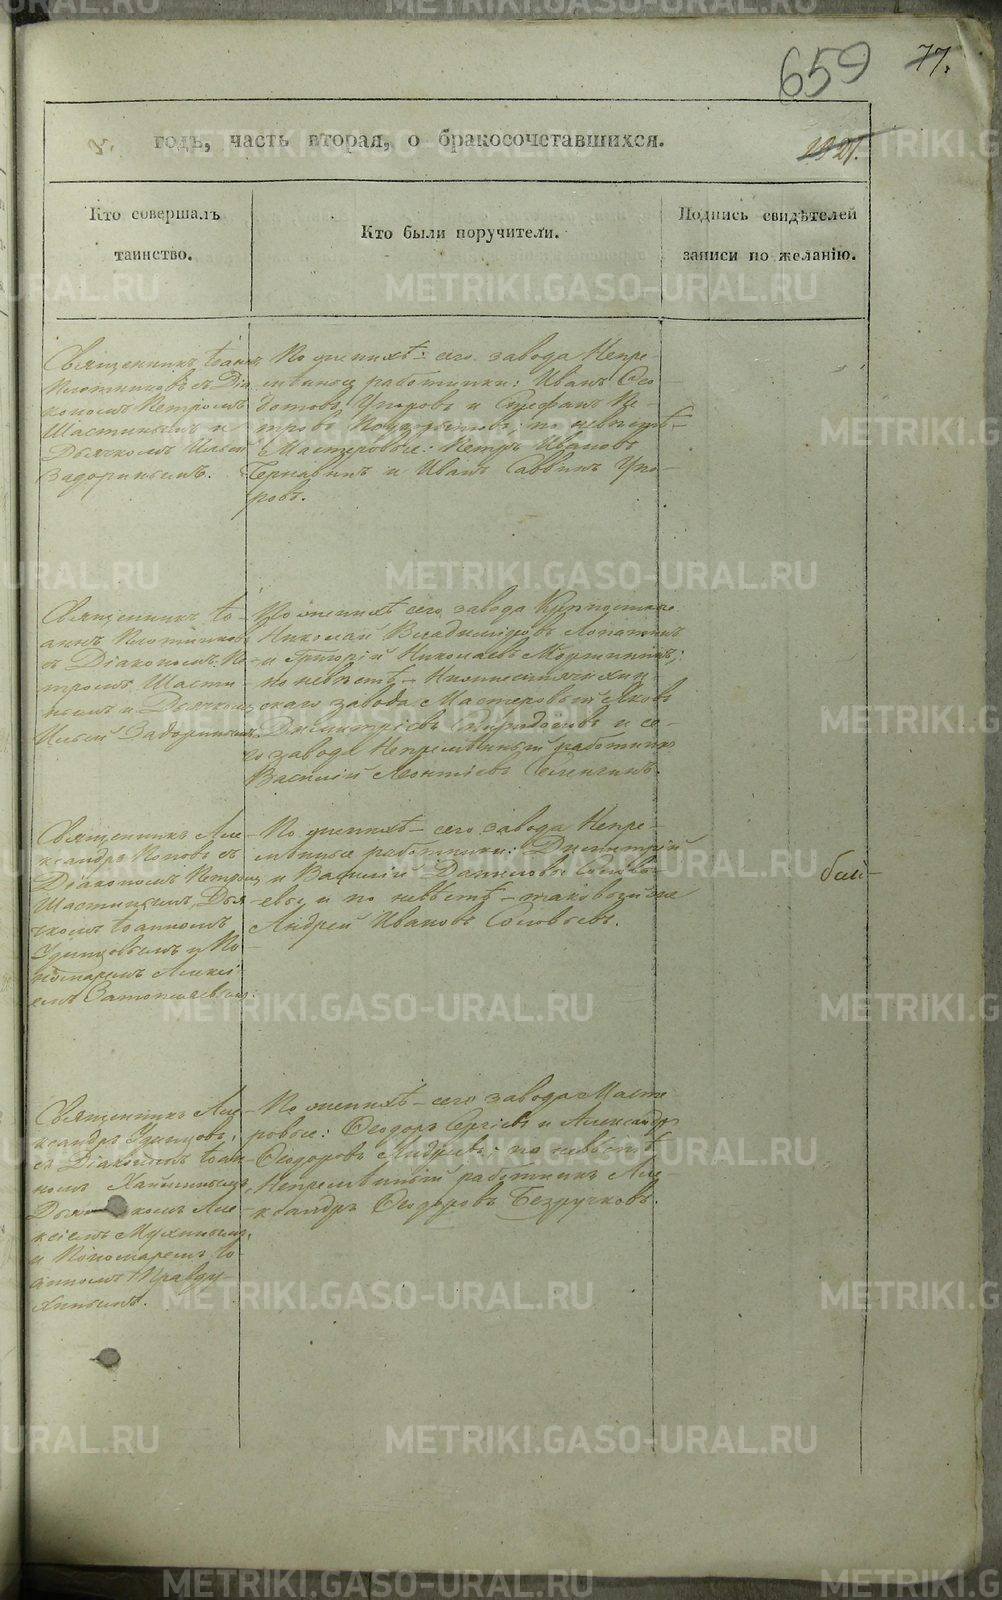 659
77.
годъ, часть вторая, о бракосочетавшихся.
Кто совершалъ
таинство.
Кто были поручители.
Подпись свидѣтелей
записи по желанію.
Священникъ Іоаннъ
Плотниковъ съ Діа
кономъ Петромъ
Шастинымъ и
Дьячкомъ Ильей
Задоринымъ.
По женихѣ: сего завода Непре-
мѣнные работники: Иванъ Ѳео
дотовъ Упоровъ и Стефанъ Пе-
тровъ по невѣстѣ-
Мастеровые: Петръ Ивановъ
и Иванъ Саввинъ Упо-
ровъ.
Священникъ Іо-
аннъ Плотниковъ
съ Діакономъ Пе-
тромъ Шасти-
нымъ и Дьячкомъ
Ильей Задоринымъ.
По женихѣ сего завода
Николай Владиміровъ Лопатинъ
и Григорій Николаевъ
по невѣстѣ-
скаго завода Мастеровый Яковъ
Димитріевъ и се-
го завода Непремѣнный работникъ
Василій Леонтіевъ
Священникъ Але-
ксандръ Поповъ съ
Діакономъ Петромъ
Шастинымъ, Дья
чкомъ Іоанномъ
Удинцовымъ и По-
номаремъ Алексі
емъ
По женихѣ - сего завода Непре-
мѣнные работники: Димитрій
и Василій Даниловы Соловь-
евы и по невѣстѣ - таковой же
Андрей Ивановъ Соловьевъ.
Священникъ Але-
ксандръ Удинцовъ,
съ Діакономъ Іоан
номъ
Дьячкомъ Але-
ксіемъ Мухинымъ,
и Пономаремъ Іо
анномъ Кравду-
хинымъ.
По женихѣ - сего завода Масте
ровые: Ѳеодоръ Сергіевъ и Александръ
Ѳеодоровъ по невѣстѣ
Непремѣнный работникъ Але
ксандръ Ѳеодоровъ Безручковъ.
METRIKI.GASO-URAL.RU